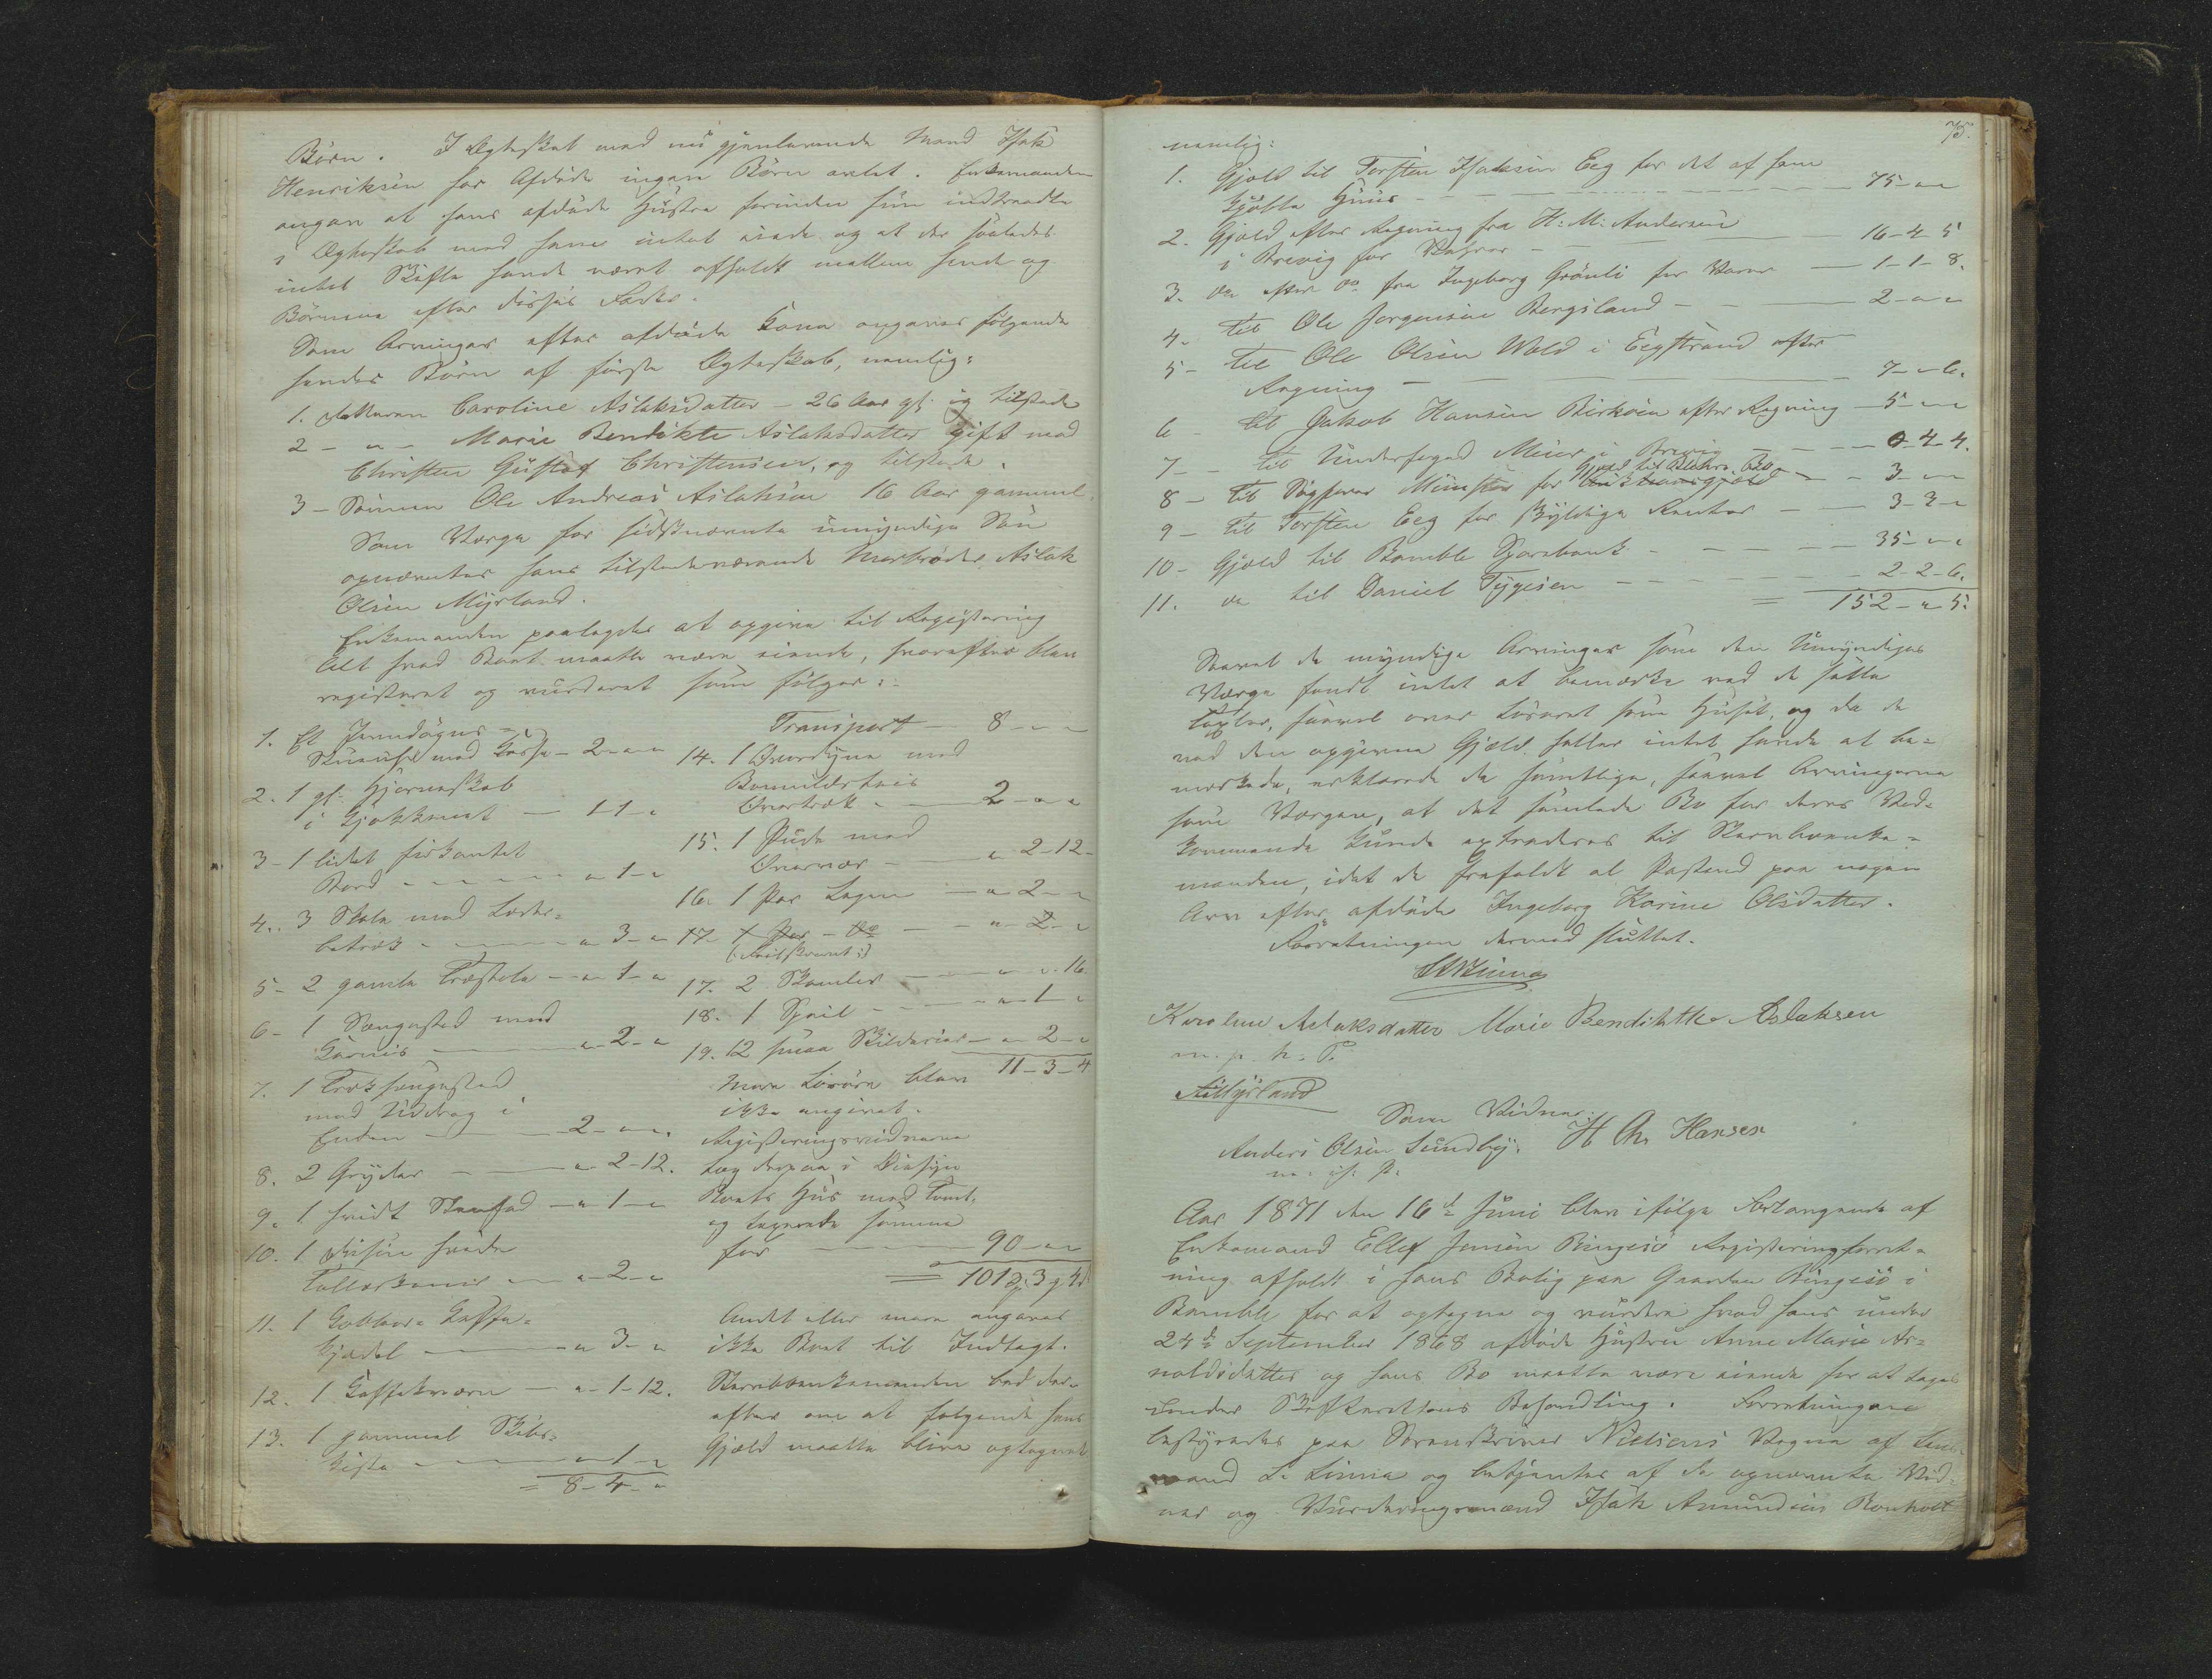 Børn. I Ægteskab med nu gjenlevende Mand Isak
Henriksen har Afdøde ingen Børn avlet. Enkemanden
angav at hans afdøde Hustru forinden hun indtraadte
i Ægteskab med ham intet eiede og at der saaledes
intet Skifte havde været afholdt mellem hende og
Børnene efter disses Fader.
Som Arvinger efter afdøde Kone angaves følgende
hendes Børn af første Ægteskab, nemlig:
1. Datteren Caroline Aslaksdatter - 26 Aar gl. og tilstede
2 - " - Marie Bendikte Aslaksdatter gift med
Christen Gustaf Christensen, og tilstede.
3 - Sønnen Ole Andreas Aslaksen 16 Aar gammel.
Som Værge for sidstnævnte umyndige Søn
opnævntes hans tilstedeværende Morbroder Aslak
Olsen Myrland.
Enkemanden paalagdes at opgive til Registrering
Alt hvad Boet maatte være eiende, hvorefter blev
registreret og vurderet som følger:
1. Et
Stueuhr med Kasse - 2 - " - "
2. 1 gl. Hjørneskab
i Kjøkkenet - 1 - 1 - "
3 - 1 lidet firkantet
Bord - " - 1 - "
4. 3 Stole med Læder-
betræk - " - 3 - "
5 - 2 gamle Træstole - " - 1 - "
6 - 1 Sengested med
- " - 2 - "
7. 1 Træksengested
med Uddrag i
Enden - 2 - " - "
8. 2 Gryder - " - 2 - 12.
9. 1 hvidt Steenfad - " - 1 - "
10. 1 Dusin hvide
Tallerkener - " - 2 - "
11. 1 Kobber-Kaffe-
kjedel - " - 3 - "
12. 1 Kaffekværn - " - 1 - 12.
13. 1 gammel Skibs-
kiste - " - 1 - "
= 8 - 4 - "
Transport - 8 - " - "
14. 1 Overdyne med
Bomuldstøis
Overtræk - 2 - " - "
15. 1 Pude med
Overvær - " - 2 - 12 -
16. 1 Par Lagen - " - 2 - "
17 - 1 Par - do - " - 2 - "
(: Feilskrevet :)
17. 2 Skamler - " - " - 16
18. 1 Speil - " - 1 - "
19. 12 smaa Skilderier - " - 2 - "
11 - 3 - 4
Mere Løsøre blev
ikke angivet.
Registreringsvidnerne
tog derpaa i Øiesyn
Boets Hus med Tomt,
og taxerede samme
for - 90 - " - "
= 101 3 4
Andet eller mere angaves
ikke Boet til Indtægt.
Stervboenkemanden bad der-
efter om at følgende hans
Gjæld maatte blive optegnet
75.
nemlig:
1. Gjæld til Torsten Isaksen Eeg for det af ham
kjøbte Huus - 75 - " - "
2. Gjæld efter Regning fra H: M: Andersen
i Brevig for Vahrer - 16 - 4 - 5
3. do efter do fra Ingeborg Grønli for Varer - 1 - 1 - 8.
4. til Ole Jørgensen Bergsland - 2 - " - "
5 - til Ole Olsen Wold i Eegstrand efter
Regning - 7 - " - 6.
6 - til Jakob Hansen Birkøen efter Regning - 5 - " - "
7 - til Underfoged Meier i Brevig - 0 - 4 - 4.
8 - til Sagfører Münster for Gjæld til - 3 - " - "
9 - til Torsten Eeg for skyldige Renter - 3 - 3 - "
10 - Gjæld til Bamble Sparebank - 35 - " - "
11. do til Daniel Tygesen - 2 - 2 - 6.
= 152 - " - 5.
Saavel de myndige Arvinger som den Umyndiges
Værge fandt intet at bemærke ved de satte
Taxter, saavel over Løsøret som Huset, og da de
ved den opgivne Gjæld heller intet havde at be-
mærkede, erklærede de samtlige, saavel Arvingerne
som Værgen, at det samlede Bo for deres Ved-
kommende kunde extraderes til Stervboenke-
manden, idet de frafaldt al Paastand paa nogen
Arv efter afdøde Ingeborg Karine Olsdatter.
Forretningen dermed sluttet.
Karoline Aslaksdatter Marie Bendikte Aslaksen
m. p. h. P.
AMyrland
Som Vidner:
Anders Olsen Sundby. H Chr Hansen
m. p. P.
Aar 1871 den 16de Juni blev ifølge Forlangende af
Enkemand Ellef Jensen Bingesø Registreringsforret-
ning afholdt i hans Bolig paa Gaarden Bingesø i
Bamble for at optegne og vurdere hvad hans under
24de September 1868 afdøde Hustru Anne Marie Ar-
noldsdatter og hans Bo maatte være eiende for at tages
under Skifterettens Behandling. Forretningen
bestyredes paa Sorenskriver Nielsens Vegne af Lens-
mand L. Linna og betjentes af de opnævnte Vid-
ner og Vurderingsmænd Isak Amundsen Ronholt